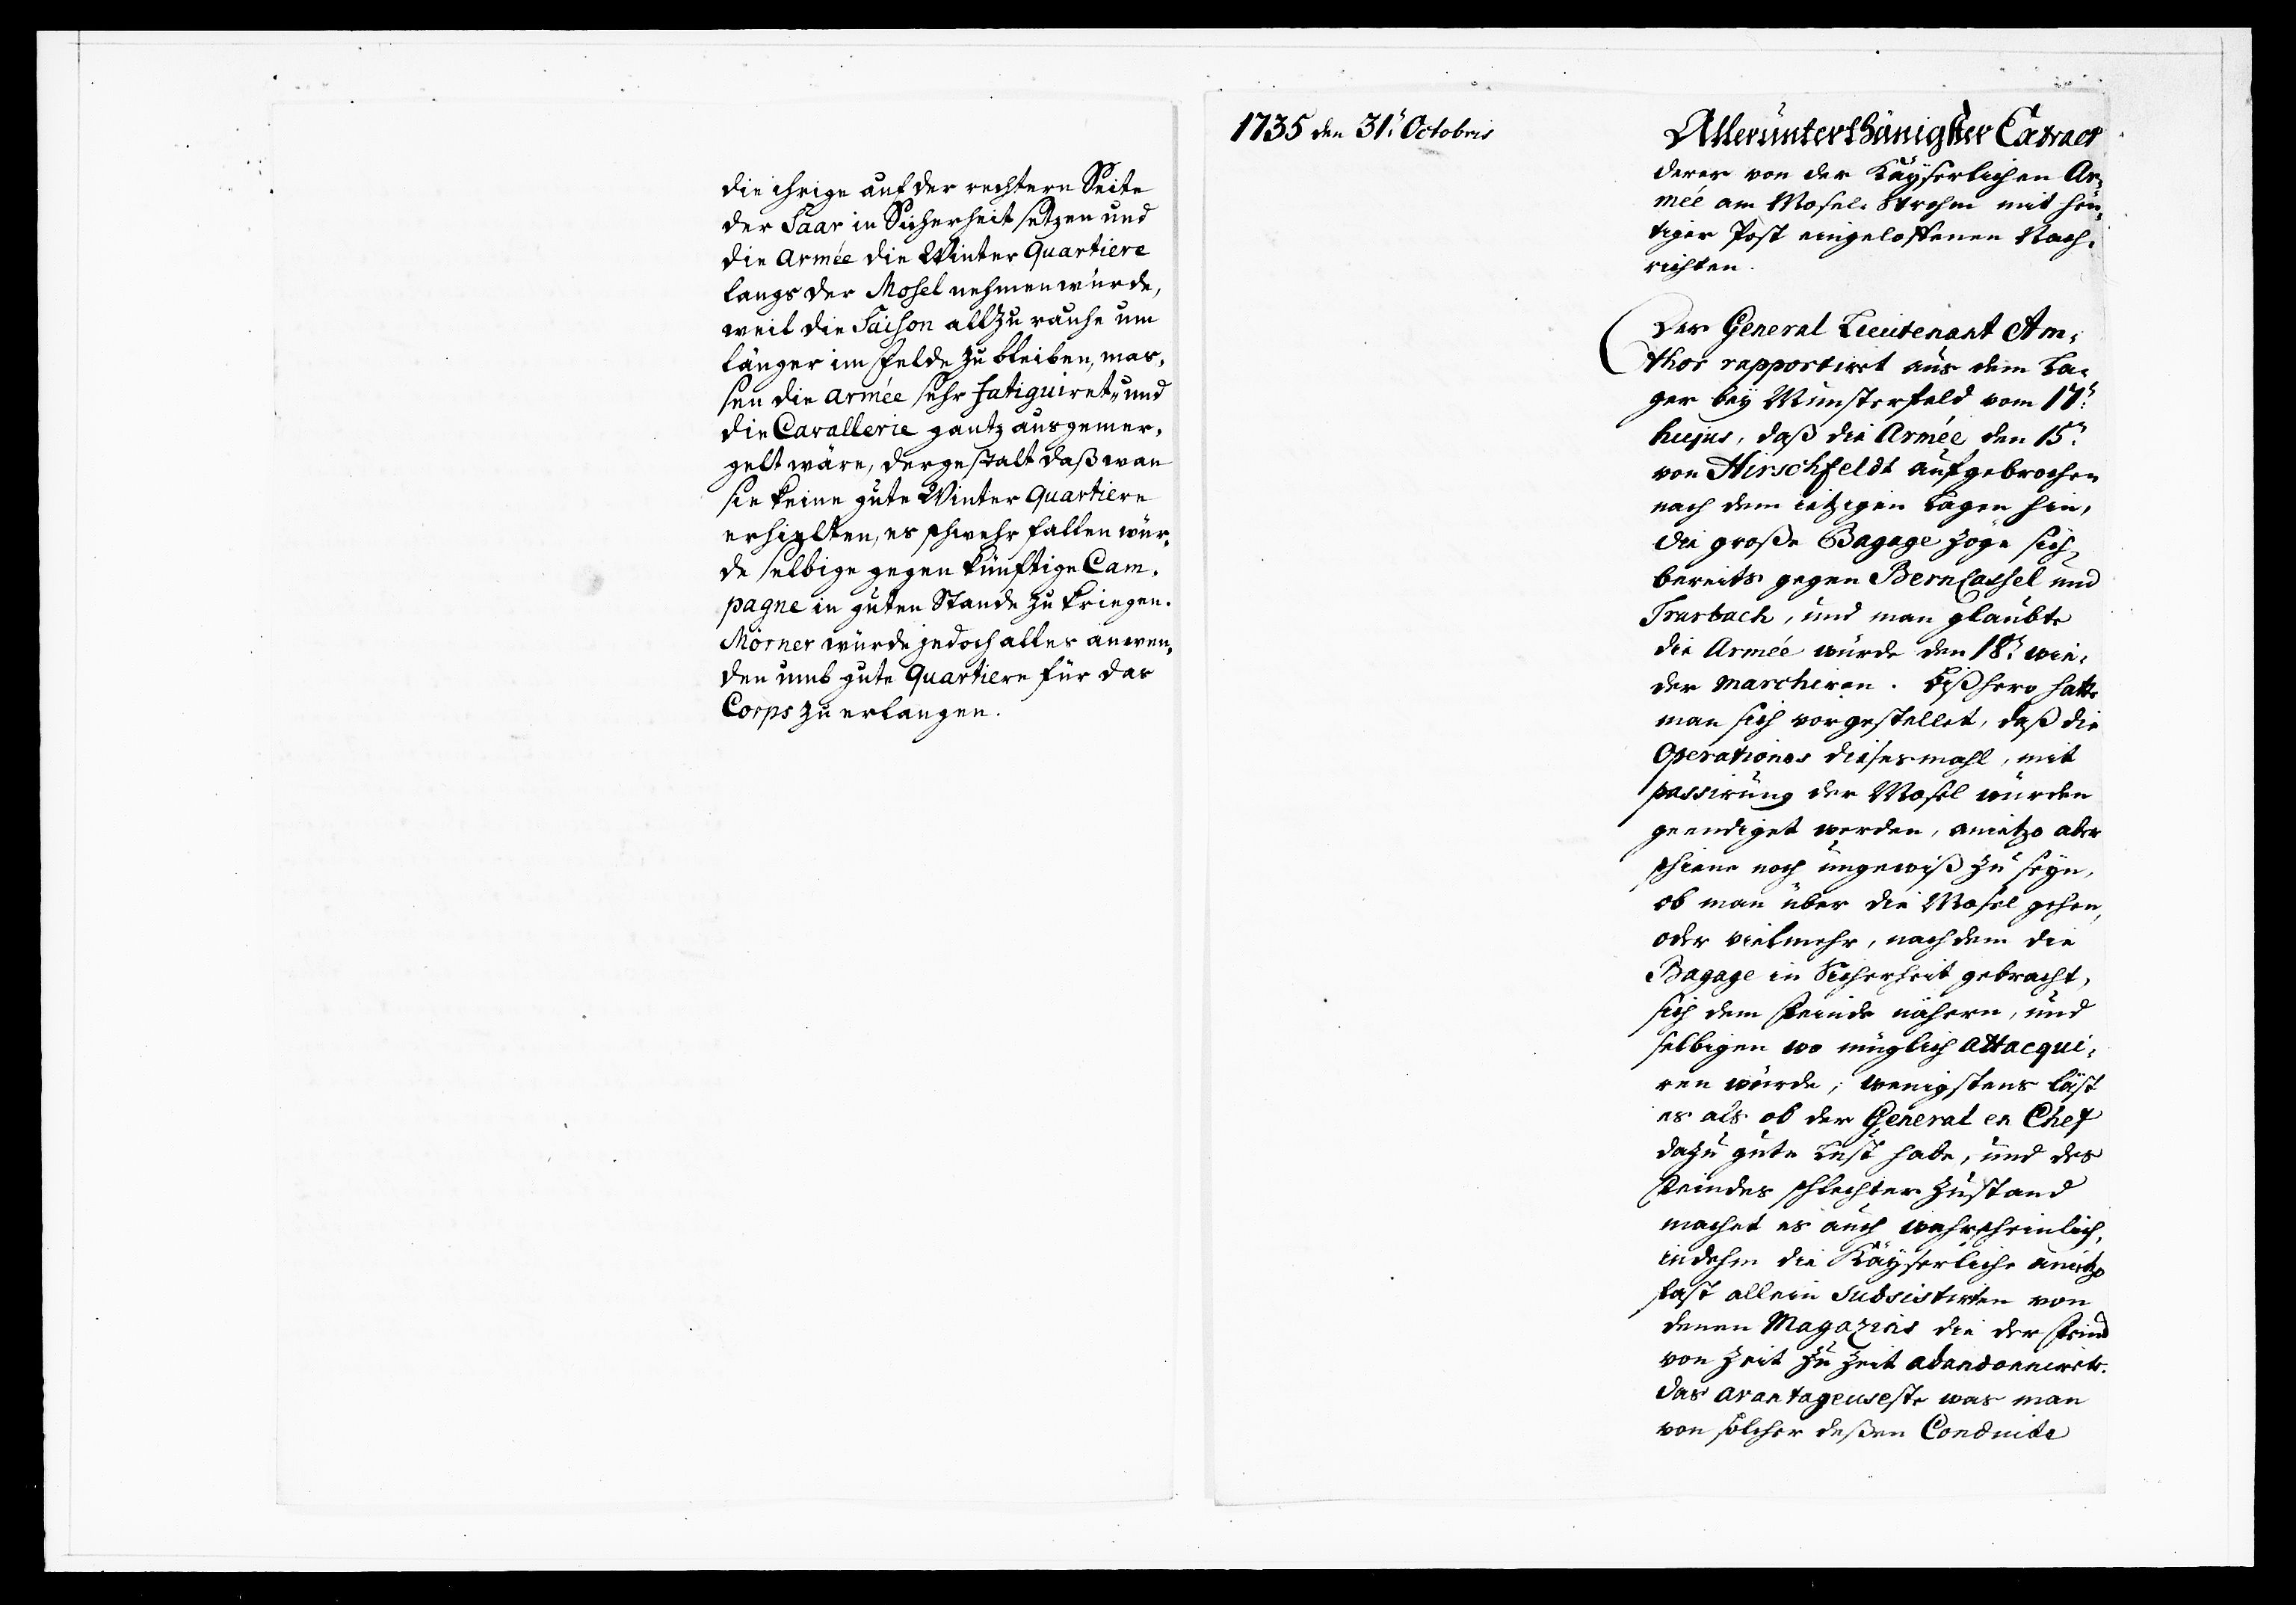 die ihrige auf der rechtern Seite
der Saar in Sicherheit setzen und
die Armée die Winter Quartiere
langs der Mosel nehmen würde,
weil die Saison allzu rauhe um
länger im Felde zu bleiben, mas,
sen die Armée sehr fatiguiret, und
die Cavallerie gantz ausgemer,
gelt wäre, dergestalt daß wan
sie keine gute Winter Quartiere
erhielten, es schwehr fallen wür,
de selbige gegen künftige Cam,
pagne in guten Stande zu kriegen.
Mörner würde jedoch alles anwen,
den umb gute Quartiere für das
Corps zu erlangen.
1735 den 31t. Octobris
Allerunterthänigster Extract
derer von der Käyserlichen Ar,
mée am Mosel-Strohm mit heü,
tiger Post eingeloffenen Nach,
richten.
Der General Lieutenant Am,
thor rapportirt aus dem La,
ger bey Münsterfeld vom 17t.
hujus, daß die Armée den 15t.
von Hirschfeldt aufgebrochen
nach dem ietzigen Lager hin,
die große Bagage zöge sich
bereits gegen Berncassel und
Trarbach, und man glaubte
die Armée würde den 18t. wie,
der marchiren. Bißhero hatte
man sich vorgestellet, daß die
Operationes diesesmahl, mit
passirung der Mosel würden
geendiget werden, anietzo aber
schiene noch ungewiß zu seyn,
ob man über die Mosel gehen,
oder vielmehr, nachdem die
Bagage in Sicherheit gebracht,
sich dem Feinde nähern, und
selbigen wo müglich attacqui,
ren würde, wenigstens läst
es als ob der General en Chef
dazu gute Lust habe, und des
Feindes schlechter Zustand
machet es auch wahrscheinlich,
indehm die Käyserliche anietzo
fast allein subsistirten von
denen Magazins die der Feind
von Zeit zu Zeit abandonnirte.
das avantageuseste was man
von solcher deßen Conduite